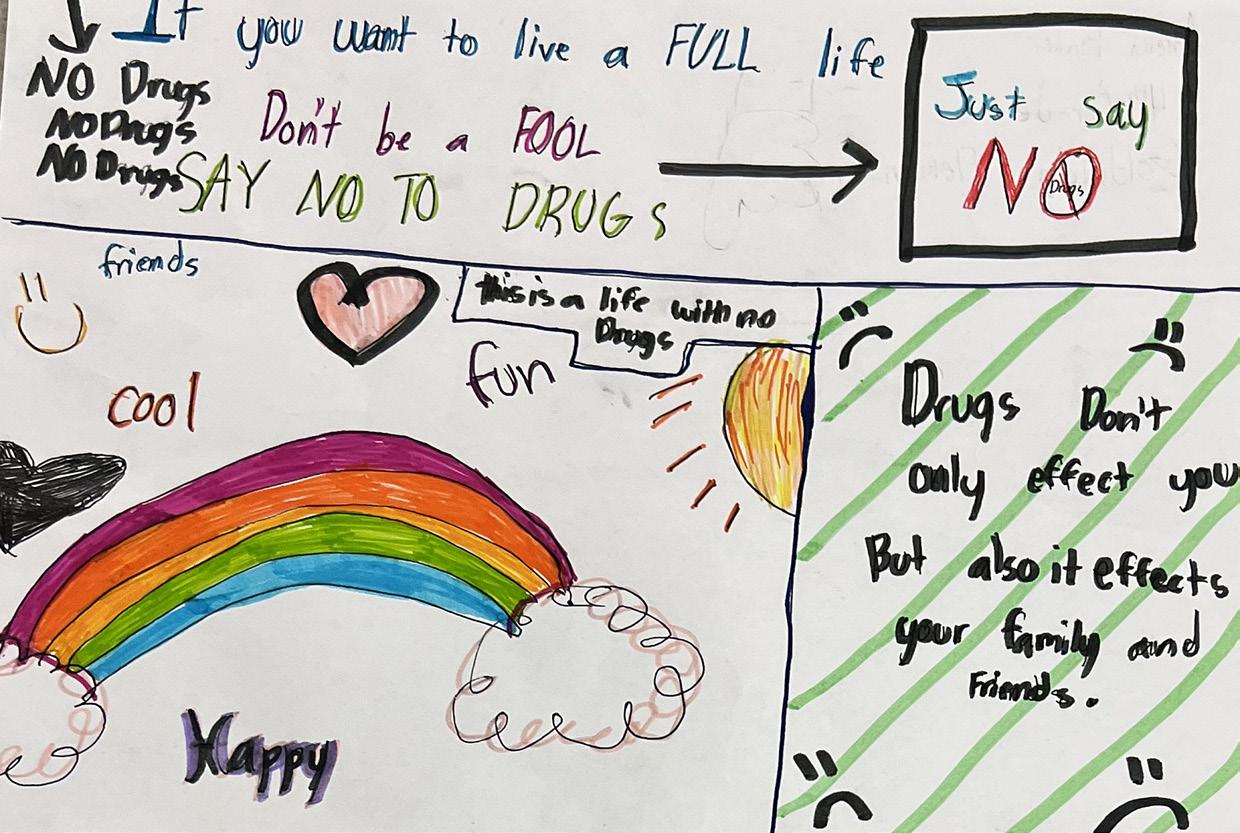 If you want to live a FULL life
NO Drugs
NO Drugs
NO Drugs
Don't be a FOOL
SAY NO TO DRUGS
Just say
NO
Drugs
friends
this is a life with no
Drugs
fun
cool
Happy
Drugs Don't
only effect you
But also it effects
your family and
Friends.